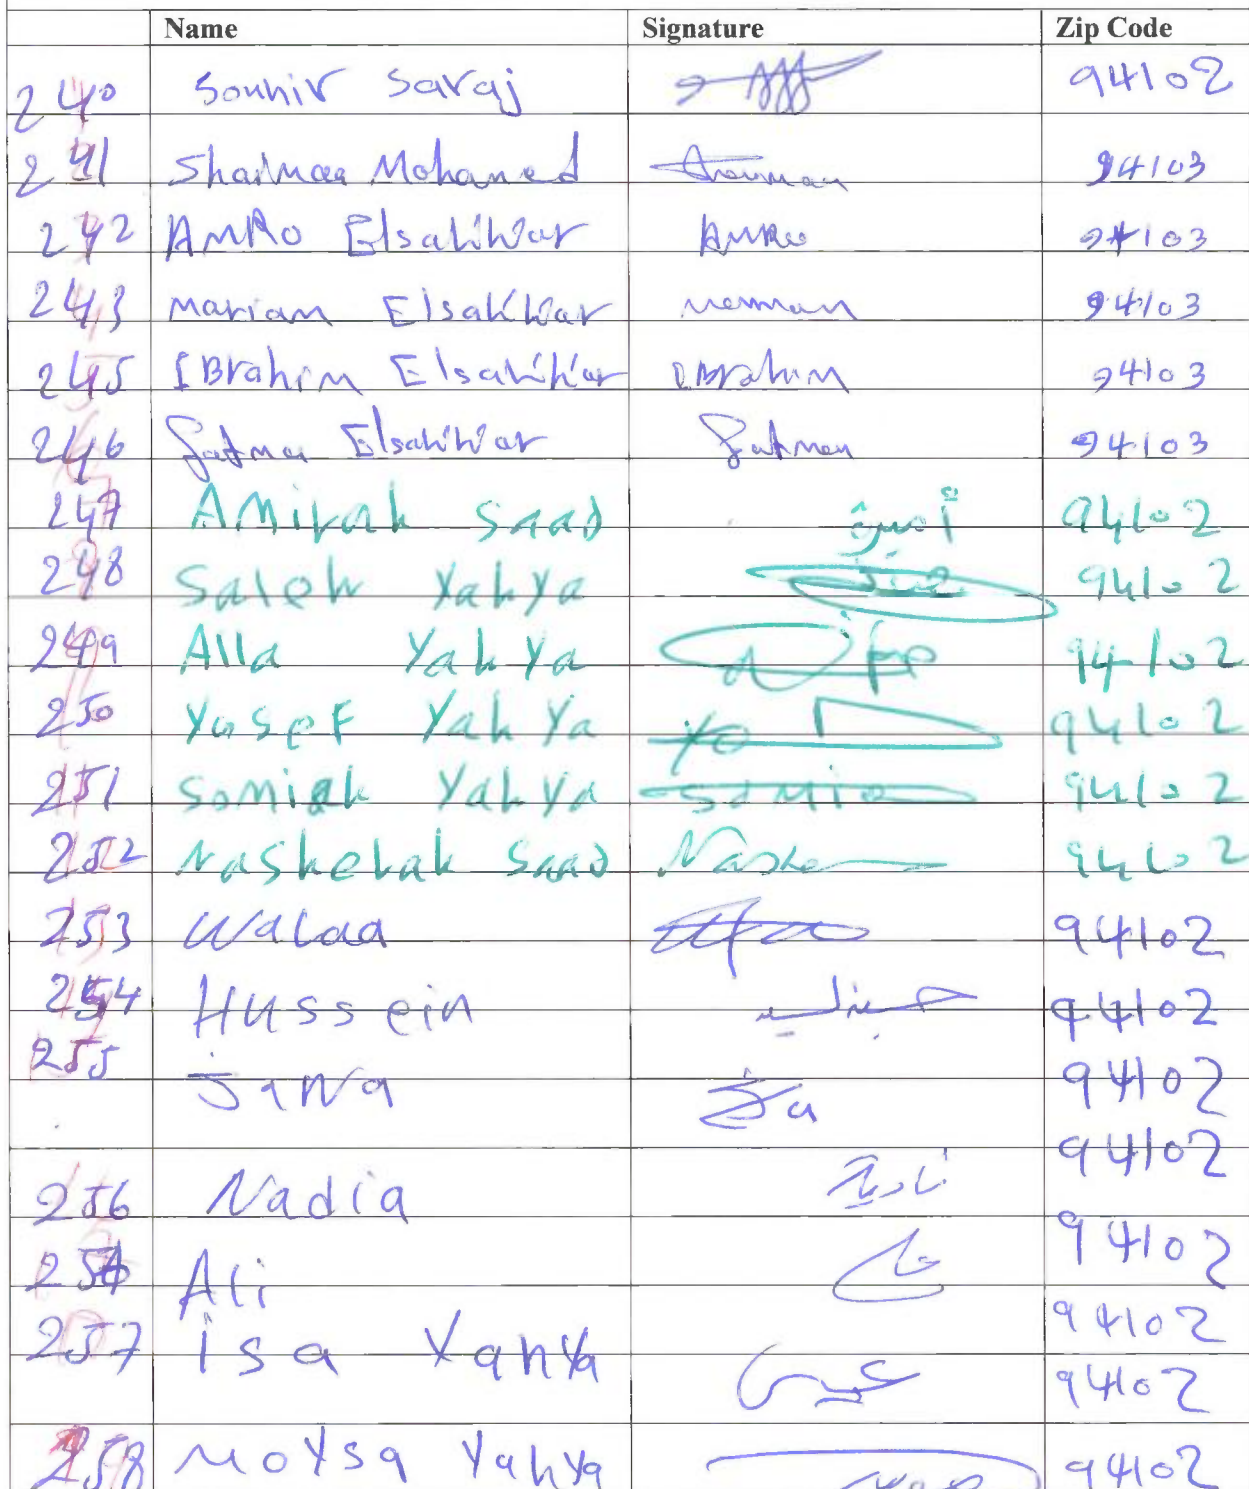 Name Signature Zip Code
240 Souhir Saraj 94102
241 Shaimaa Mohamed 94103
242 AMRO Elsakhar AMRo 94103
243 Mariam Elsakhar 94103
245 IBrahim Elsakhar IBrahim 94103
246 Fatma Elsakhar Fatma 94103
247 AMirah Saad أميرة 94102
248 Saleh YahYa 94102
249 Alla YahYa 94102
250 Yusef YahYa Yo 94102
251 Somiah YahYa Somia 94102
252 Nasherah Saad Nashe 94102
253 Walaa 94102
254 Hussein 94102
255 jana 94102
256 Nadia نادية 94102
Ali 94102
257 isa YahYa عيسى 94102
94102
258 MoYsa YahYa 94102